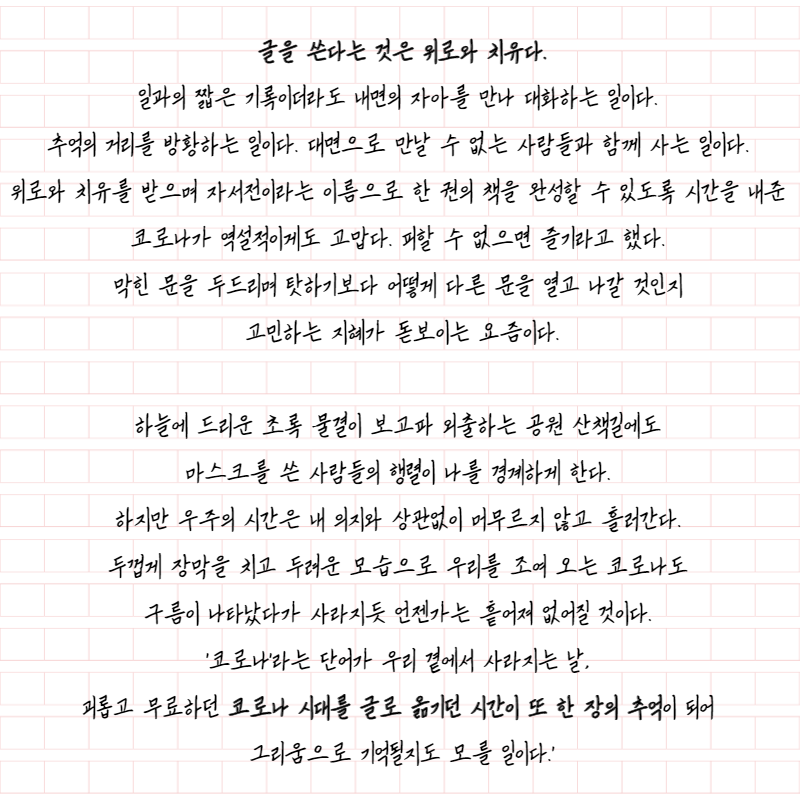 글을 쓴다는 것은 위로와 치유다.
일과의 짧은 기록이더라도 내면의 자아를 만나 대화하는 일이다.
추억의 거리를 방황하는 일이다. 대면으로 만날 수 없는 사람들과 함께 사는 일이다.
위로와 치유를 받으며 자서전이라는 이름으로 한 권의 책을 완성할 수 있도록 시간을 내준
코로나가 역설적이게도 고맙다. 피할 수 없으면 즐기라고 했다.
막힌 문을 두드리며 탓하기보다 어떻게 다른 문을 열고 나갈 것인지
고민하는 지혜가 돋보이는 요즘이다.
하늘에 드리운 초록 물결이 보고파 외출하는 공원 산책길에도
마스크를 쓴 사람들의 행렬이 나를 경계하게 한다.
하지만 우주의 시간은 내 의지와 상관없이 머무르지 않고 흘러간다.
두껍게 장막을 치고 두려운 모습으로 우리를 조여 오는 코로나도
구름이 나타났다가 사라지듯 언젠가는 흩어져 없어질 것이다.
'코로나'라는 단어가 우리 곁에서 사라지는 날,
괴롭고 무료하던 코로나 시대를 글로 옮기던 시간이 또 한 장의 추억이 되어
그리움으로 기억될지도 모를 일이다.'